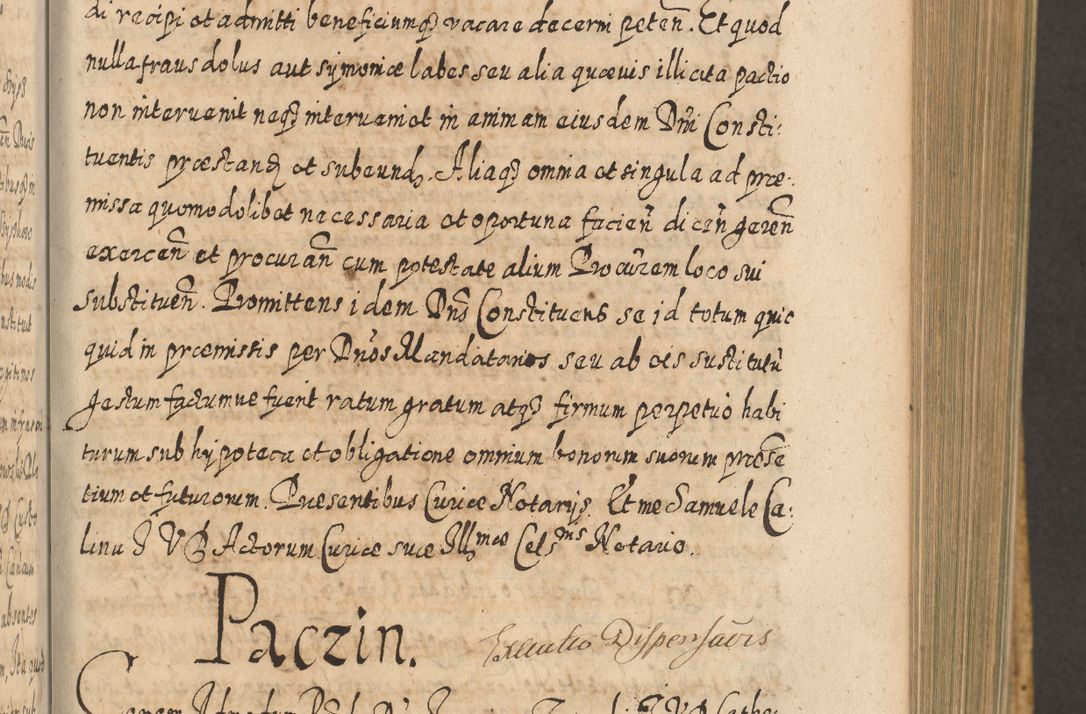 di recipi et admitti beneficiumq₃ vacare decerni peteñ. Et quod
nulla fraus dolus aut symoniæ labes seu alia quævis illicita pactio
non intervenit neq₃ interveniet in animam eiusdem Dñi Consti:
tuentis præstand₃ et subeund₃. Aliaq₃ omnia et singula ad præ:
missa quomodolibet necessaria et oportuna facieñ diceñ gereñ
exerceñ et procurañ cum potestate alium Procurem loco sui
substitueñ. Promittens idem Dñs Constituens se id totum quic
quid in præmissis per Dños Mandatarios seu ab eis sustitutũ
gestum factumue fuerit ratum gratum atq₃ firmum perpetuò habi
turum sub hypoteca et obligatione omnium bonorum suorum præse
tium et futurorum. Præsentibus Curiæ Notarijs. Et me Samuele Ca:
linu J V D Actorum Curiæ suæ Illmæ Celsnis Notario.
Paczin.
Executio Dispensaõis